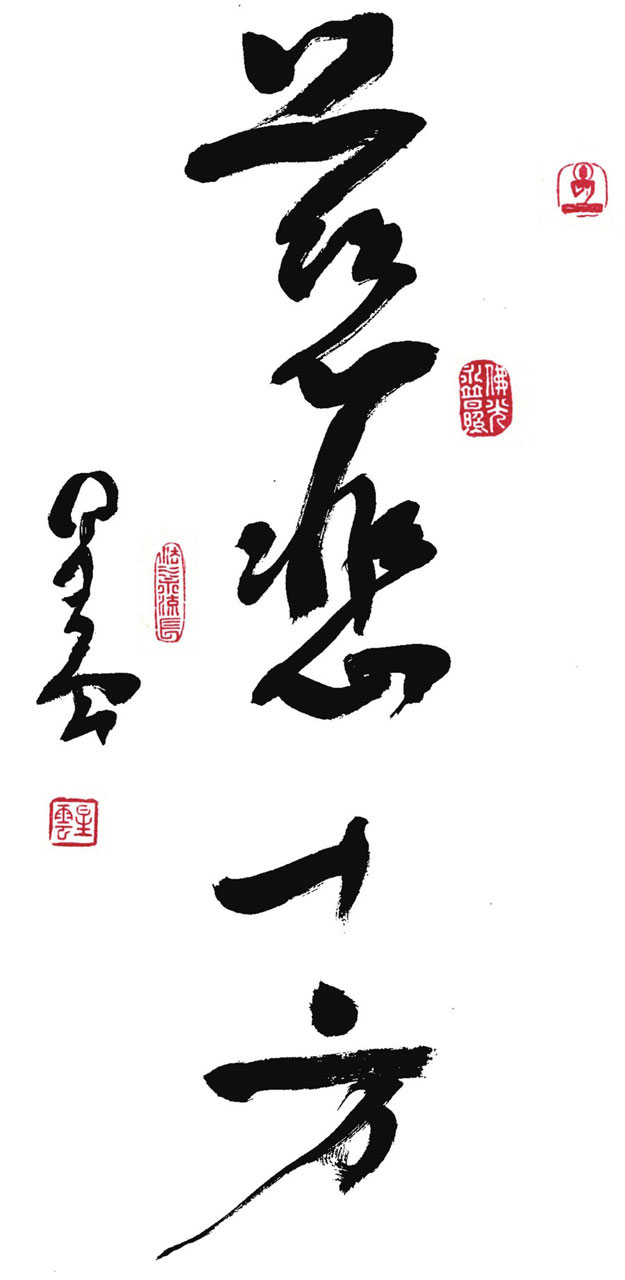 慈悲十方
佛光
永普照
法水流長
星雲
星雲